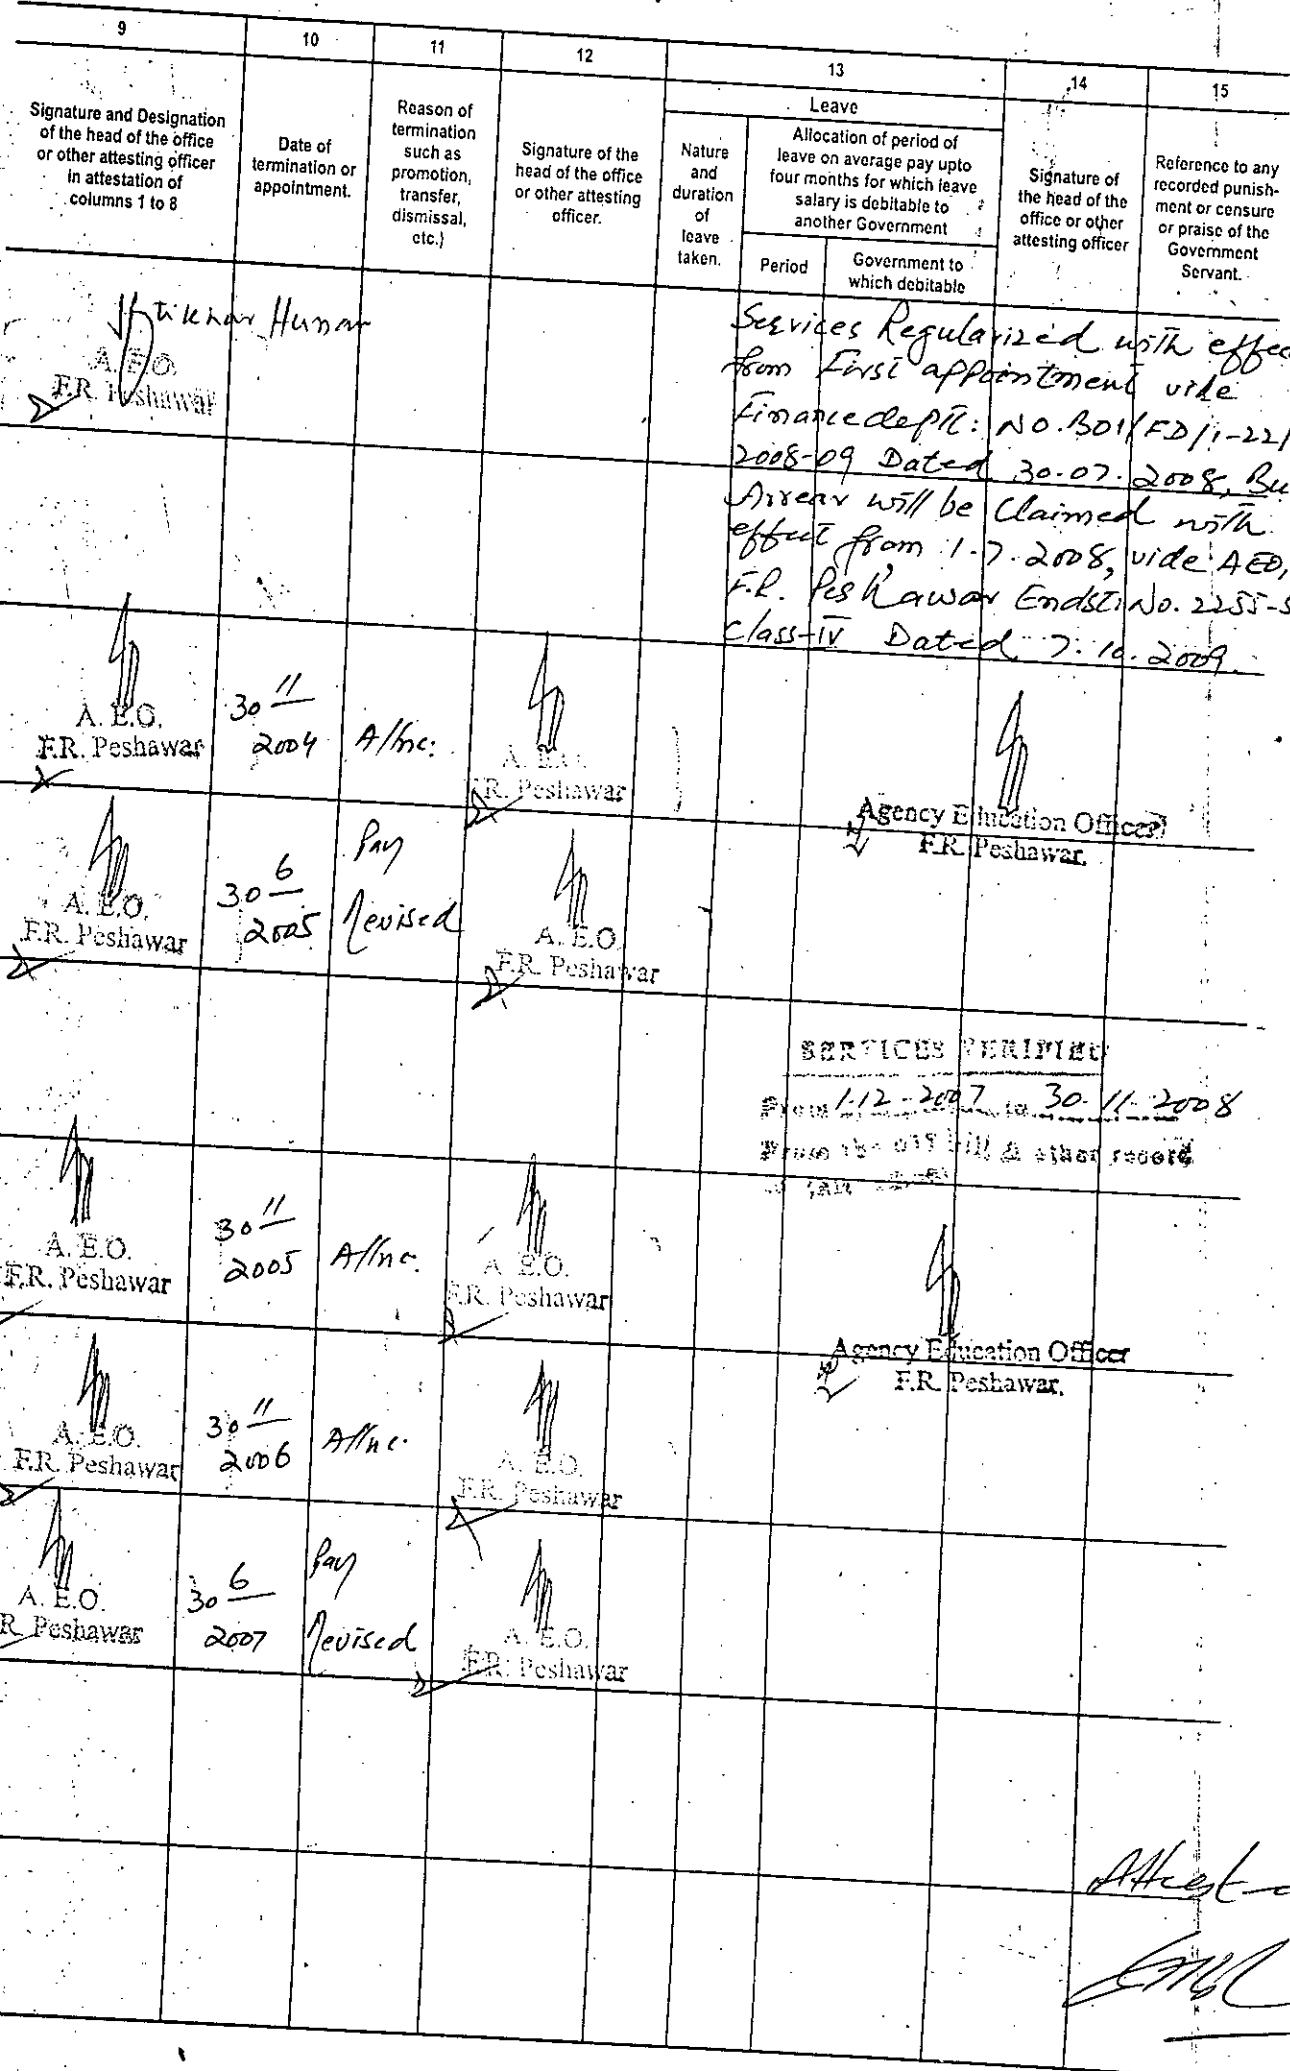 9 10 11 12 13 14 15
Signature and Designation
of the head of the office
or other attesting officer
in attestation of
columns 1 to 8
Date of
termination or
appointment.
Reason of
termination
such as
promotion,
transfer,
dismissal,
etc.)
Signature of the
head of the office
or other attesting
officer.
Leave
Nature
and
duration
of
leave
taken.
Allocation of period of
leave on average pay upto
four months for which leave
salary is debitable to
another Government
Period
Government to
which debitable
Signature of
the head of the
office or other
attesting officer
Reference to any
recorded punish-
ment or censure
or praise of the
Government
Servant.
A.E.O.
F.R. Peshawar
Services Regularized with effec
from First appointment vide
Finance deptt: No. BO1/FD/1-22/
2008-09 Dated 30.07.2008, Bu
Arrear will be Claimed with
effect from 1.7.2008, vide AEO,
F.R. Peshawar Endst: No. 2255-5
Class-iv Dated 7.10.2009.
A.E.O.
F.R. Peshawar
30 11
2004
A/Inc:
A.E.O.
F.R. Peshawar
Agency Education Officer
F.R. Peshawar.
A.E.O.
F.R. Peshawar
30 6
2005
Pay
Revised
A.E.O.
F.R. Peshawar
SERVICES VERIFIED
From 1-12-2007 to 30-11-2008
From the bill & other record
A.E.O.
F.R. Peshawar
30 11
2005
A/Inc.
A.E.O.
F.R. Peshawar
Agency Education Officer
F.R. Peshawar.
A.E.O.
F.R. Peshawar
30 11
2006
A/Inc.
A.E.O.
F.R. Peshawar
A.E.O.
R. Peshawar
30 6
2007
Pay
Revised
A.E.O.
F.R. Peshawar